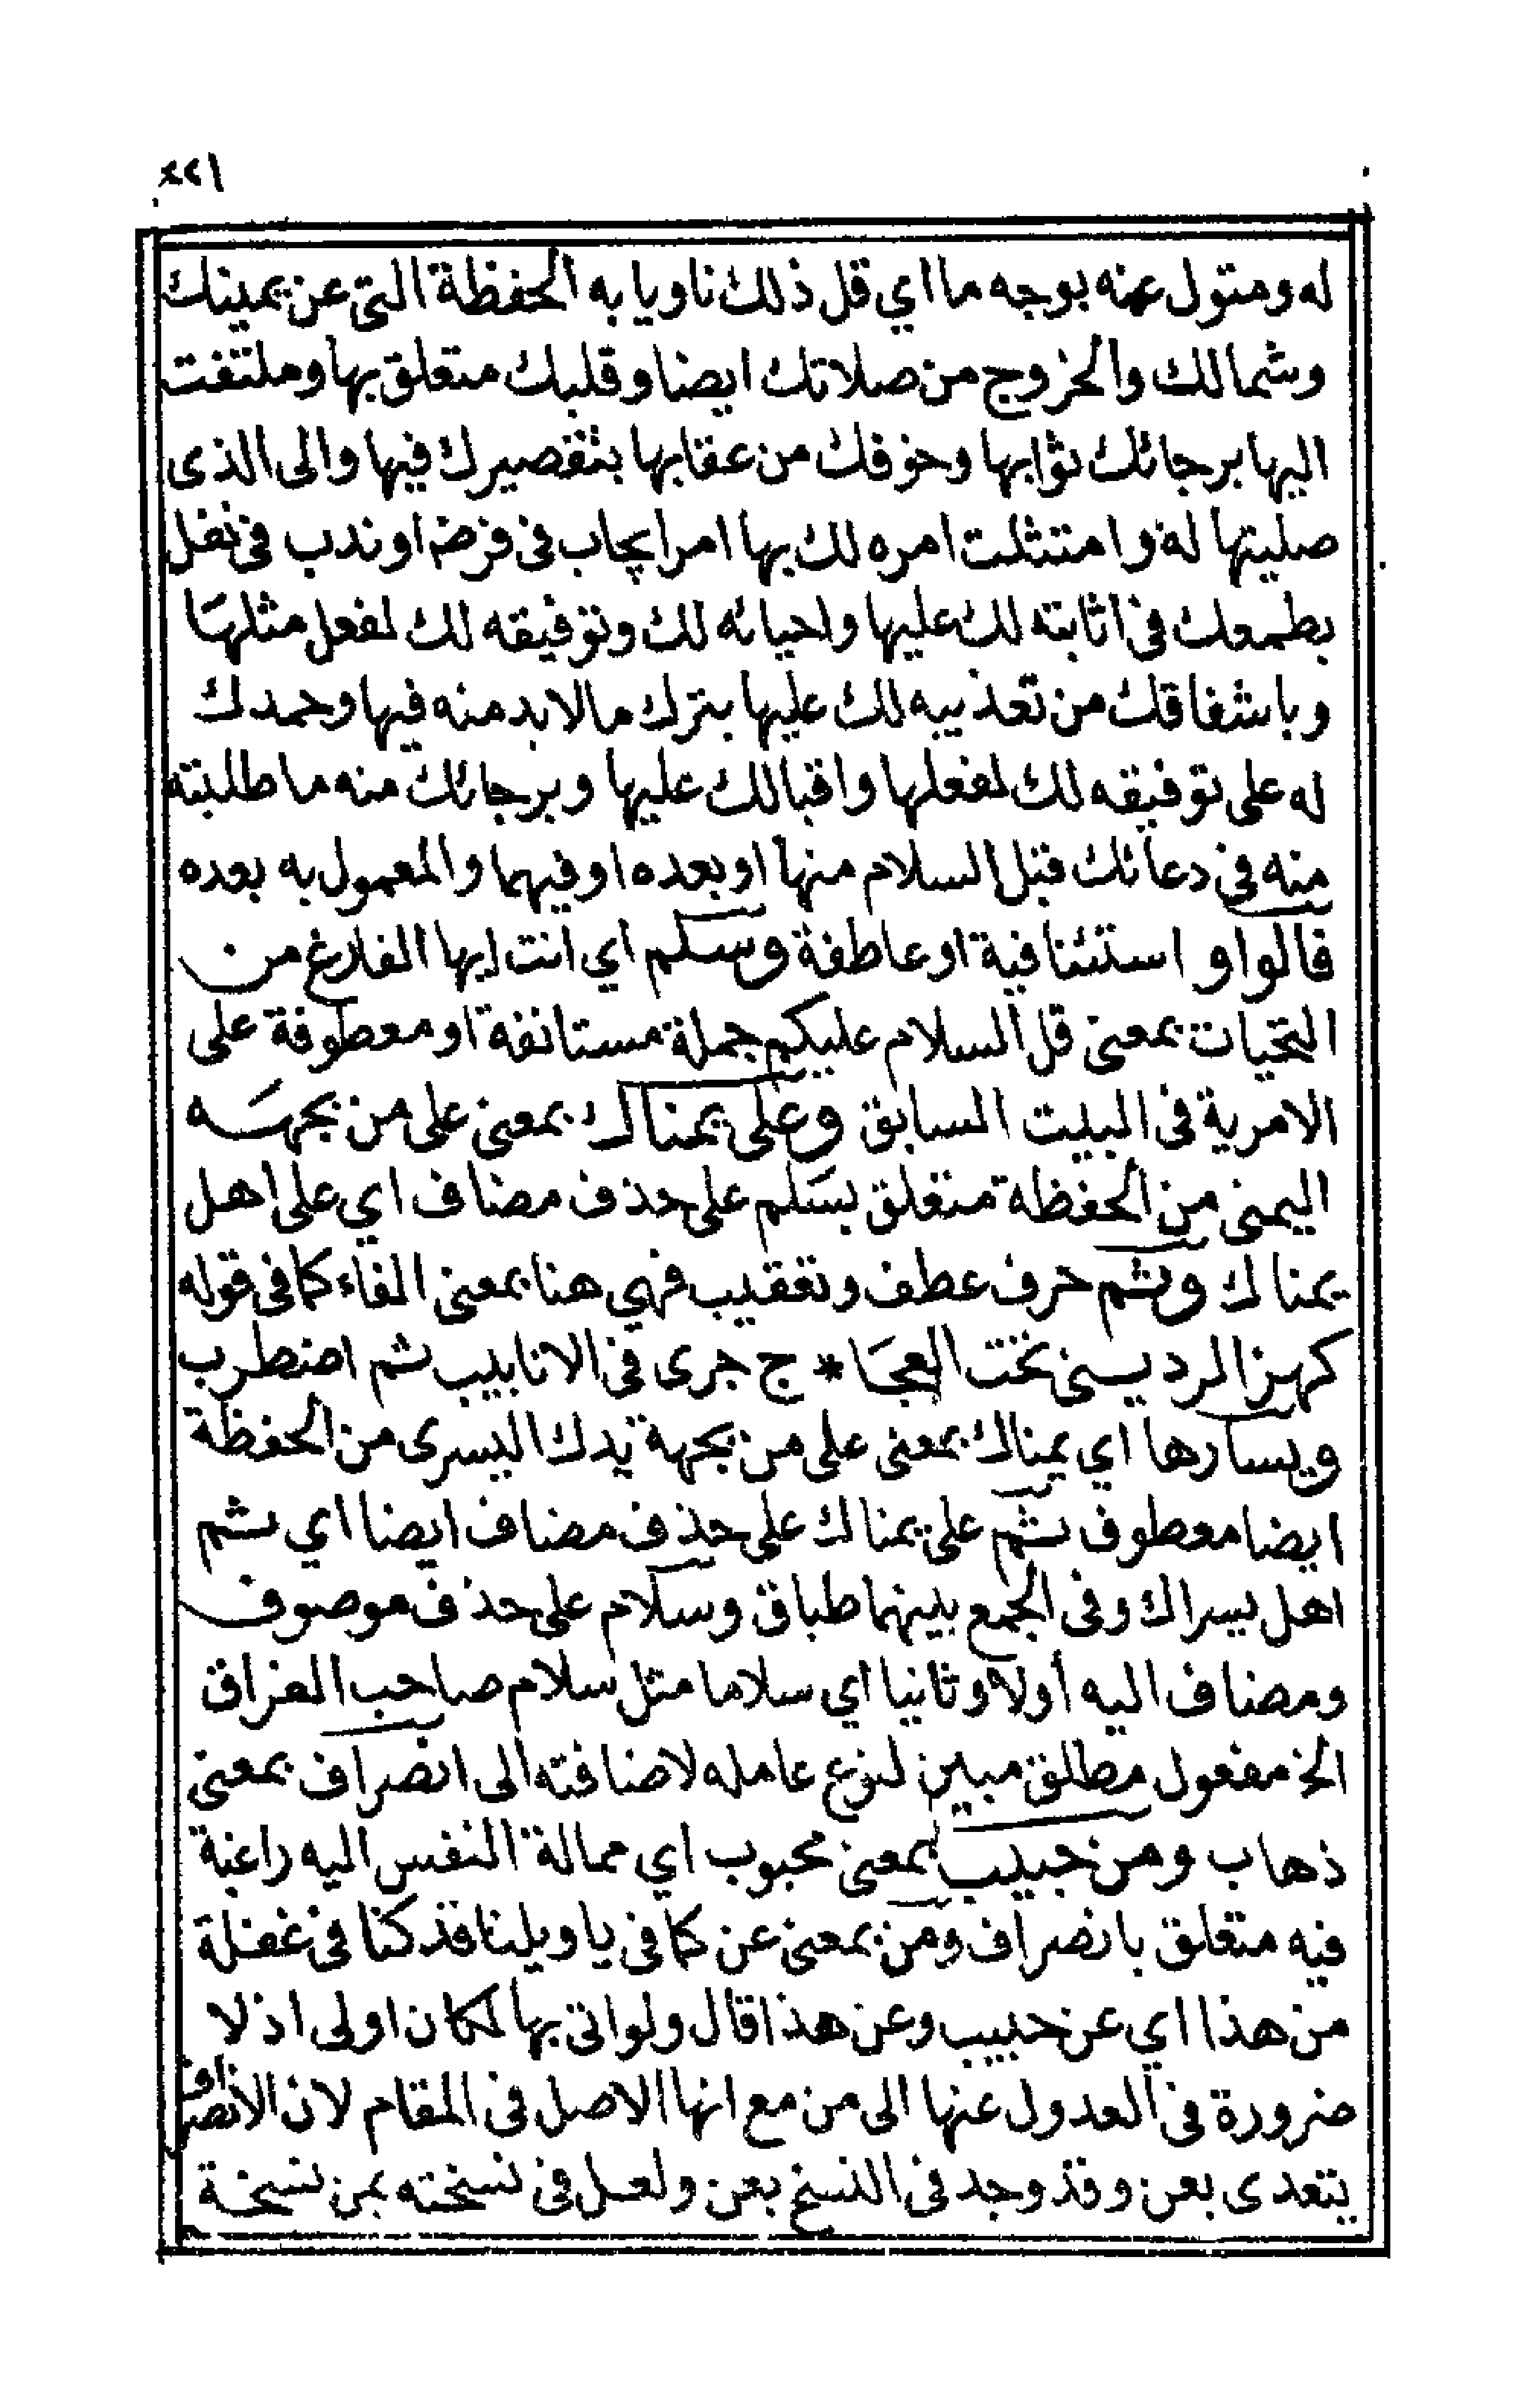 ٤٢١
له ومتول عنه بوجه ما اي قل ذلك ناويا به الحفظة التي عن يمينك
وشمالك والخروج من صلاتك ايضا وقلبك متعلق بها وملتفت
اليها برجائك ثوابها وخوفك من عقابها بتقصيرك فيها والى الذى
صليتها له وامتثلت امره لك بها امرايجاب فى فرض اوندب فى نفل
بطمعك فى اثابته لك عليها واحيائه لك وتوفيقه لك لفعل مثلها
وباشفاقك من تعذيبه لك عليها بترك مالابد منه فيها وحمدك
له على توفيقه لك لفعلها واقبالك عليها وبرجائك منه ما طلبته
منه فى دعائك قبل السلام منها او بعده اوفيهما والمعمول به بعده
فالواو استئنافية اوعاطفة وسلم اي انت ايها الفارغ من
التحيات بمعنى قل السلام عليكم جملة مستانفة او معطوفة على
الامرية فى البيت السابق وعلى يمناك بمعنى على من بجهته
اليمنى من الحفظة متعلق بسلم على حذف مضاف اي على اهل
يمناك وثم حرف عطف وتعقيب فهي هنا بمعنى الفاء كما فى قوله
كهز الردينى تحت العجا * ج جرى فى الانابيب ثم اضطرب
ويسارها اي يمناك بمعنى على من بجهة يدك اليسرى من الحفظة
ايضا معطوف بثم على يمناك على حذف مضاف ايضا اي ثم
اهل يسراك وفى الجمع بينهما طباق وسلام على حذف موصوف
ومضاف اليه أولا وثانيا اي سلاما مثل سلام صاحب الفراق
الخ مفعول مطلق مبين لنوع عامله لاضافته الى انصراف بمعنى
ذهاب ومن حبيب بمعنى محبوب اي ممالة النفس اليه راغبة
فيه متعلق بانصراف ومن بمعنى عن كما فى ياويلنا قد كنا فى غفلة
من هذا اي عن حبيب وعن هذا قال ولواتى بها لكان اولى اذ لا
ضرورة فى العدول عنها الى من مع انها الاصل فى المقام لان الانصراف
يتعدى بعن وقد وجد فى النسخ بعن ولعل فى نسخته بمن نسخة